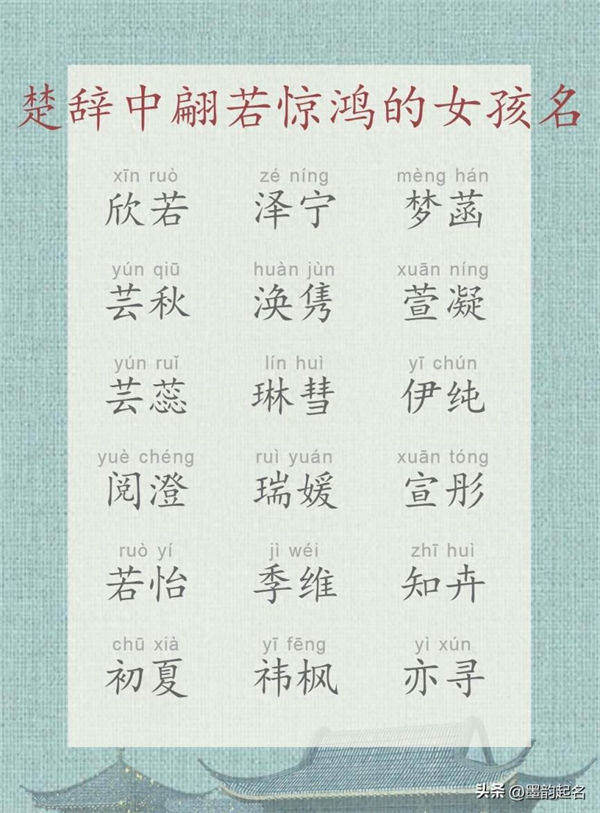 楚辞中翩若惊鸿的女孩名
xīn ruò zé níng mèng hán
欣若 泽宁 梦菡
yún qiū huàn jùn xuān níng
芸秋 涣隽 萱凝
yún ruǐ lín huì yī chún
芸蕊 琳彗 伊纯
yuè chéng ruì yuán xuān tóng
阅澄 瑞媛 宣彤
ruò yí jì wéi zhī huì
若怡 季维 知卉
chū xià yī fēng yì xún
初夏 祎枫 亦寻
头条 @墨韵起名